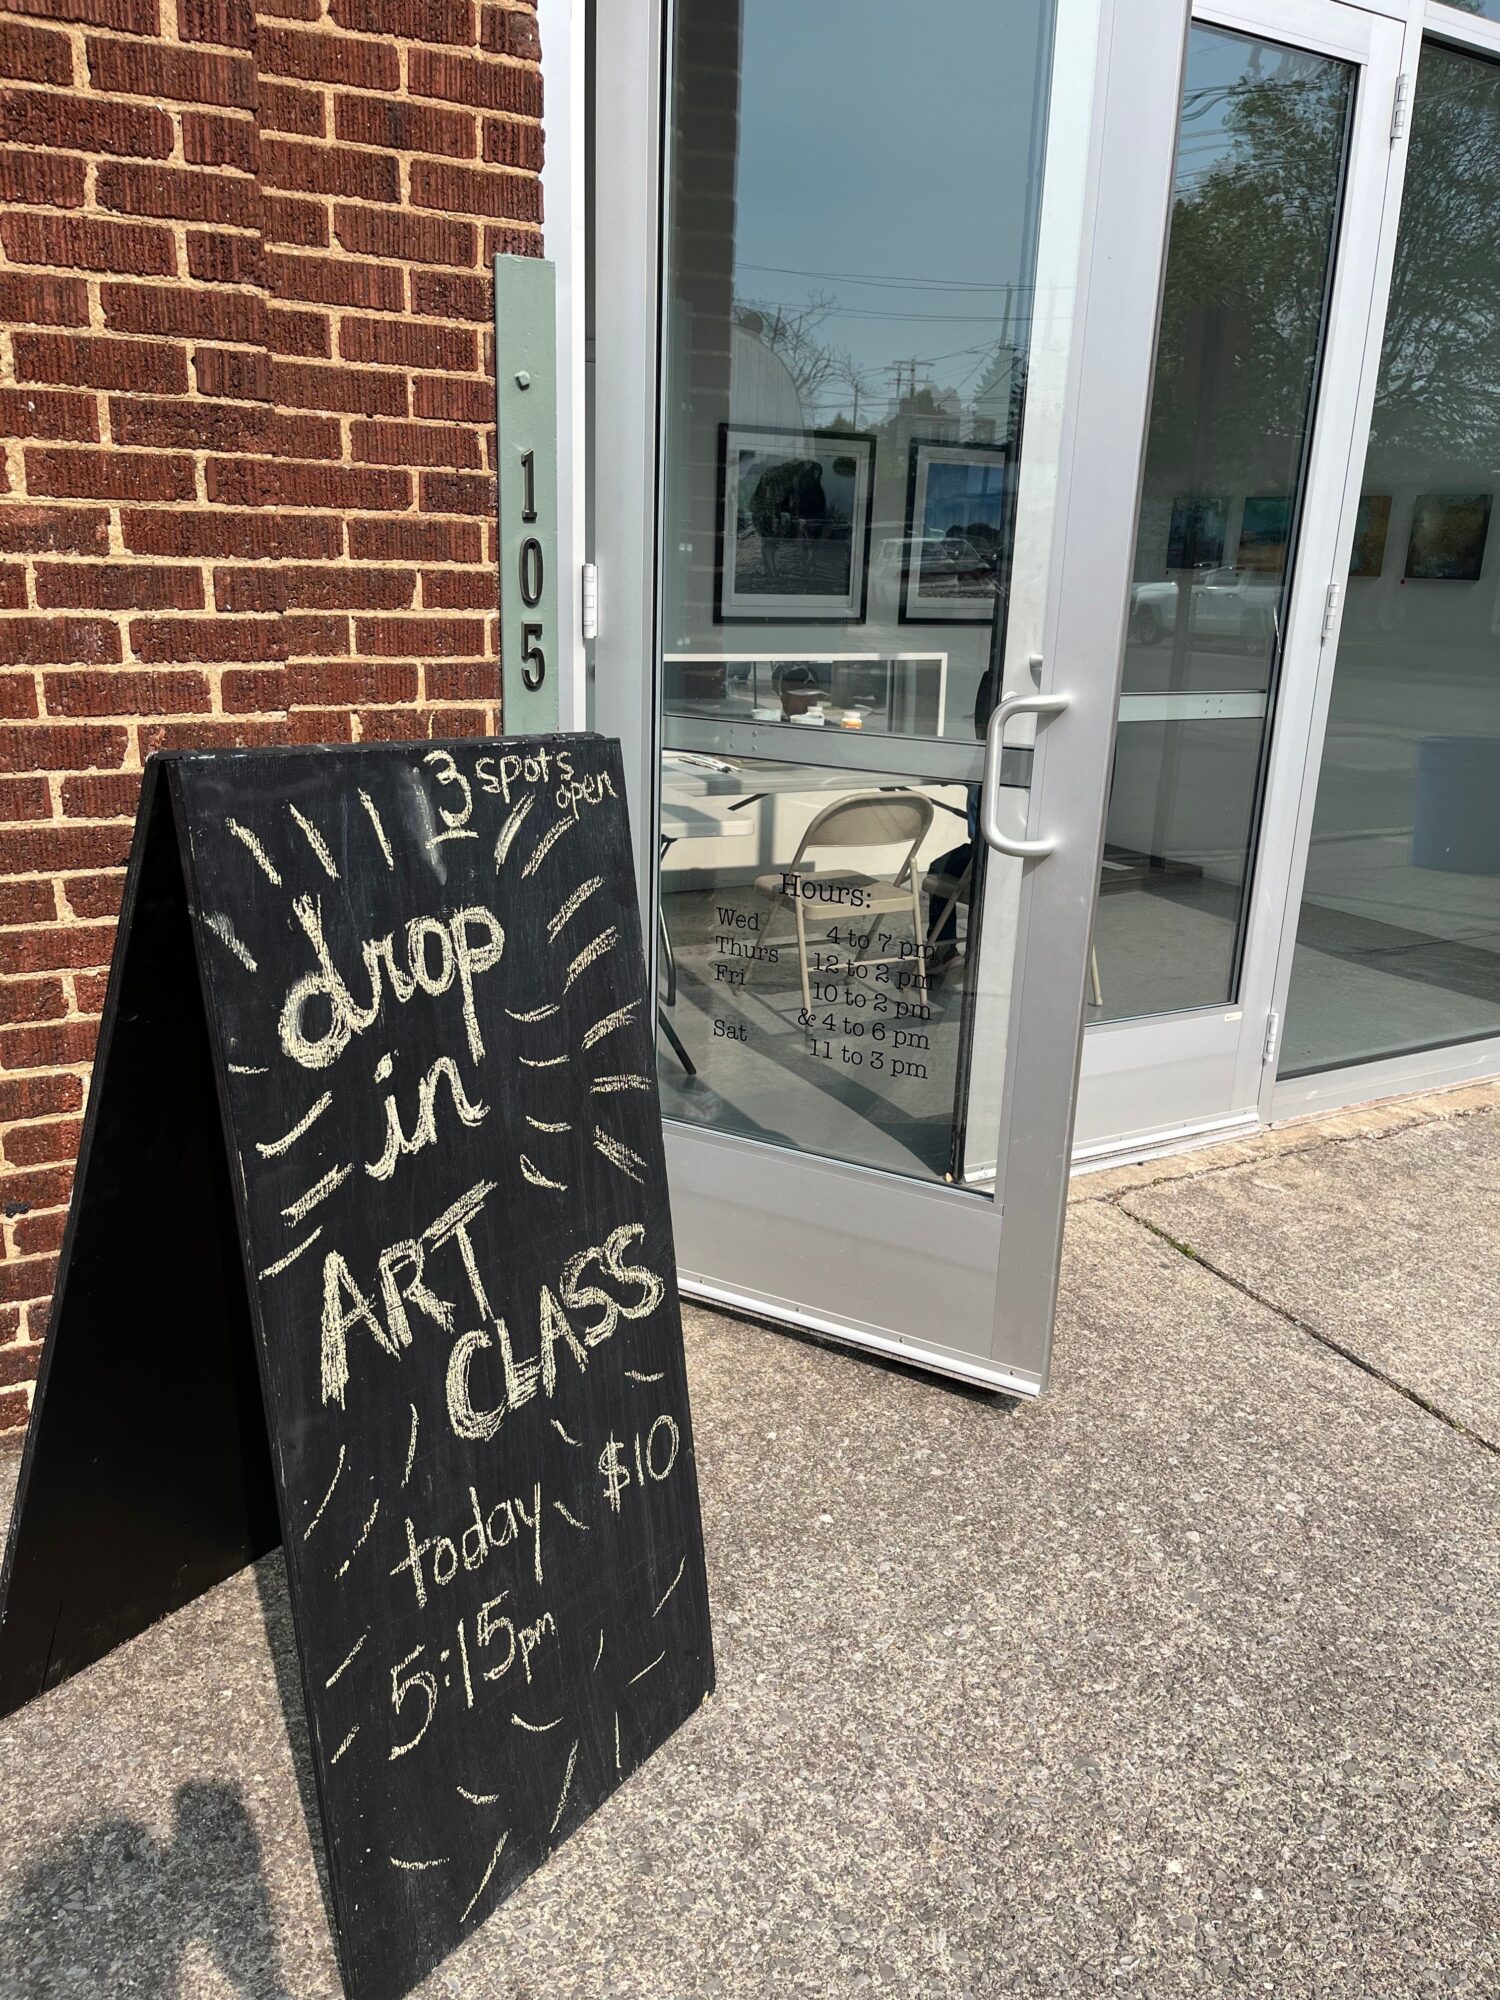 3 spots
open
drop
in
ART
CLASS
$10
today
5:15pm
105
Hours:
Wed 4 to 7 pm
Thurs 12 to 2 pm
Fri 10 to 2 pm
& 4 to 6 pm
Sat 11 to 3 pm